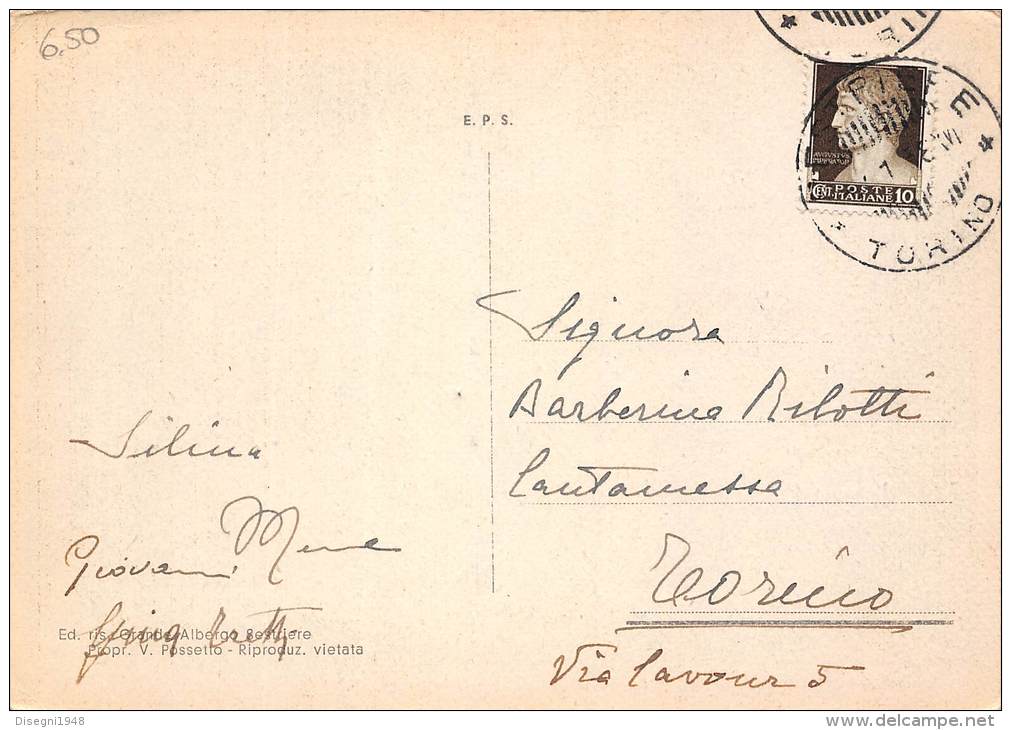 6.50
E. P. S.
AUGUSTUS
IMPERATOR
CENT. POSTE ITALIANE 10
* TORINO *
Signora
Barberina Rilotti
Cantamessa
Torino
Via Cavour 5
Silina
Giovanni
Ed. ris. Grande Albergo Sestriere
Propr. V. Possetto - Riproduz. vietata
Disegni1948
delcampe.net